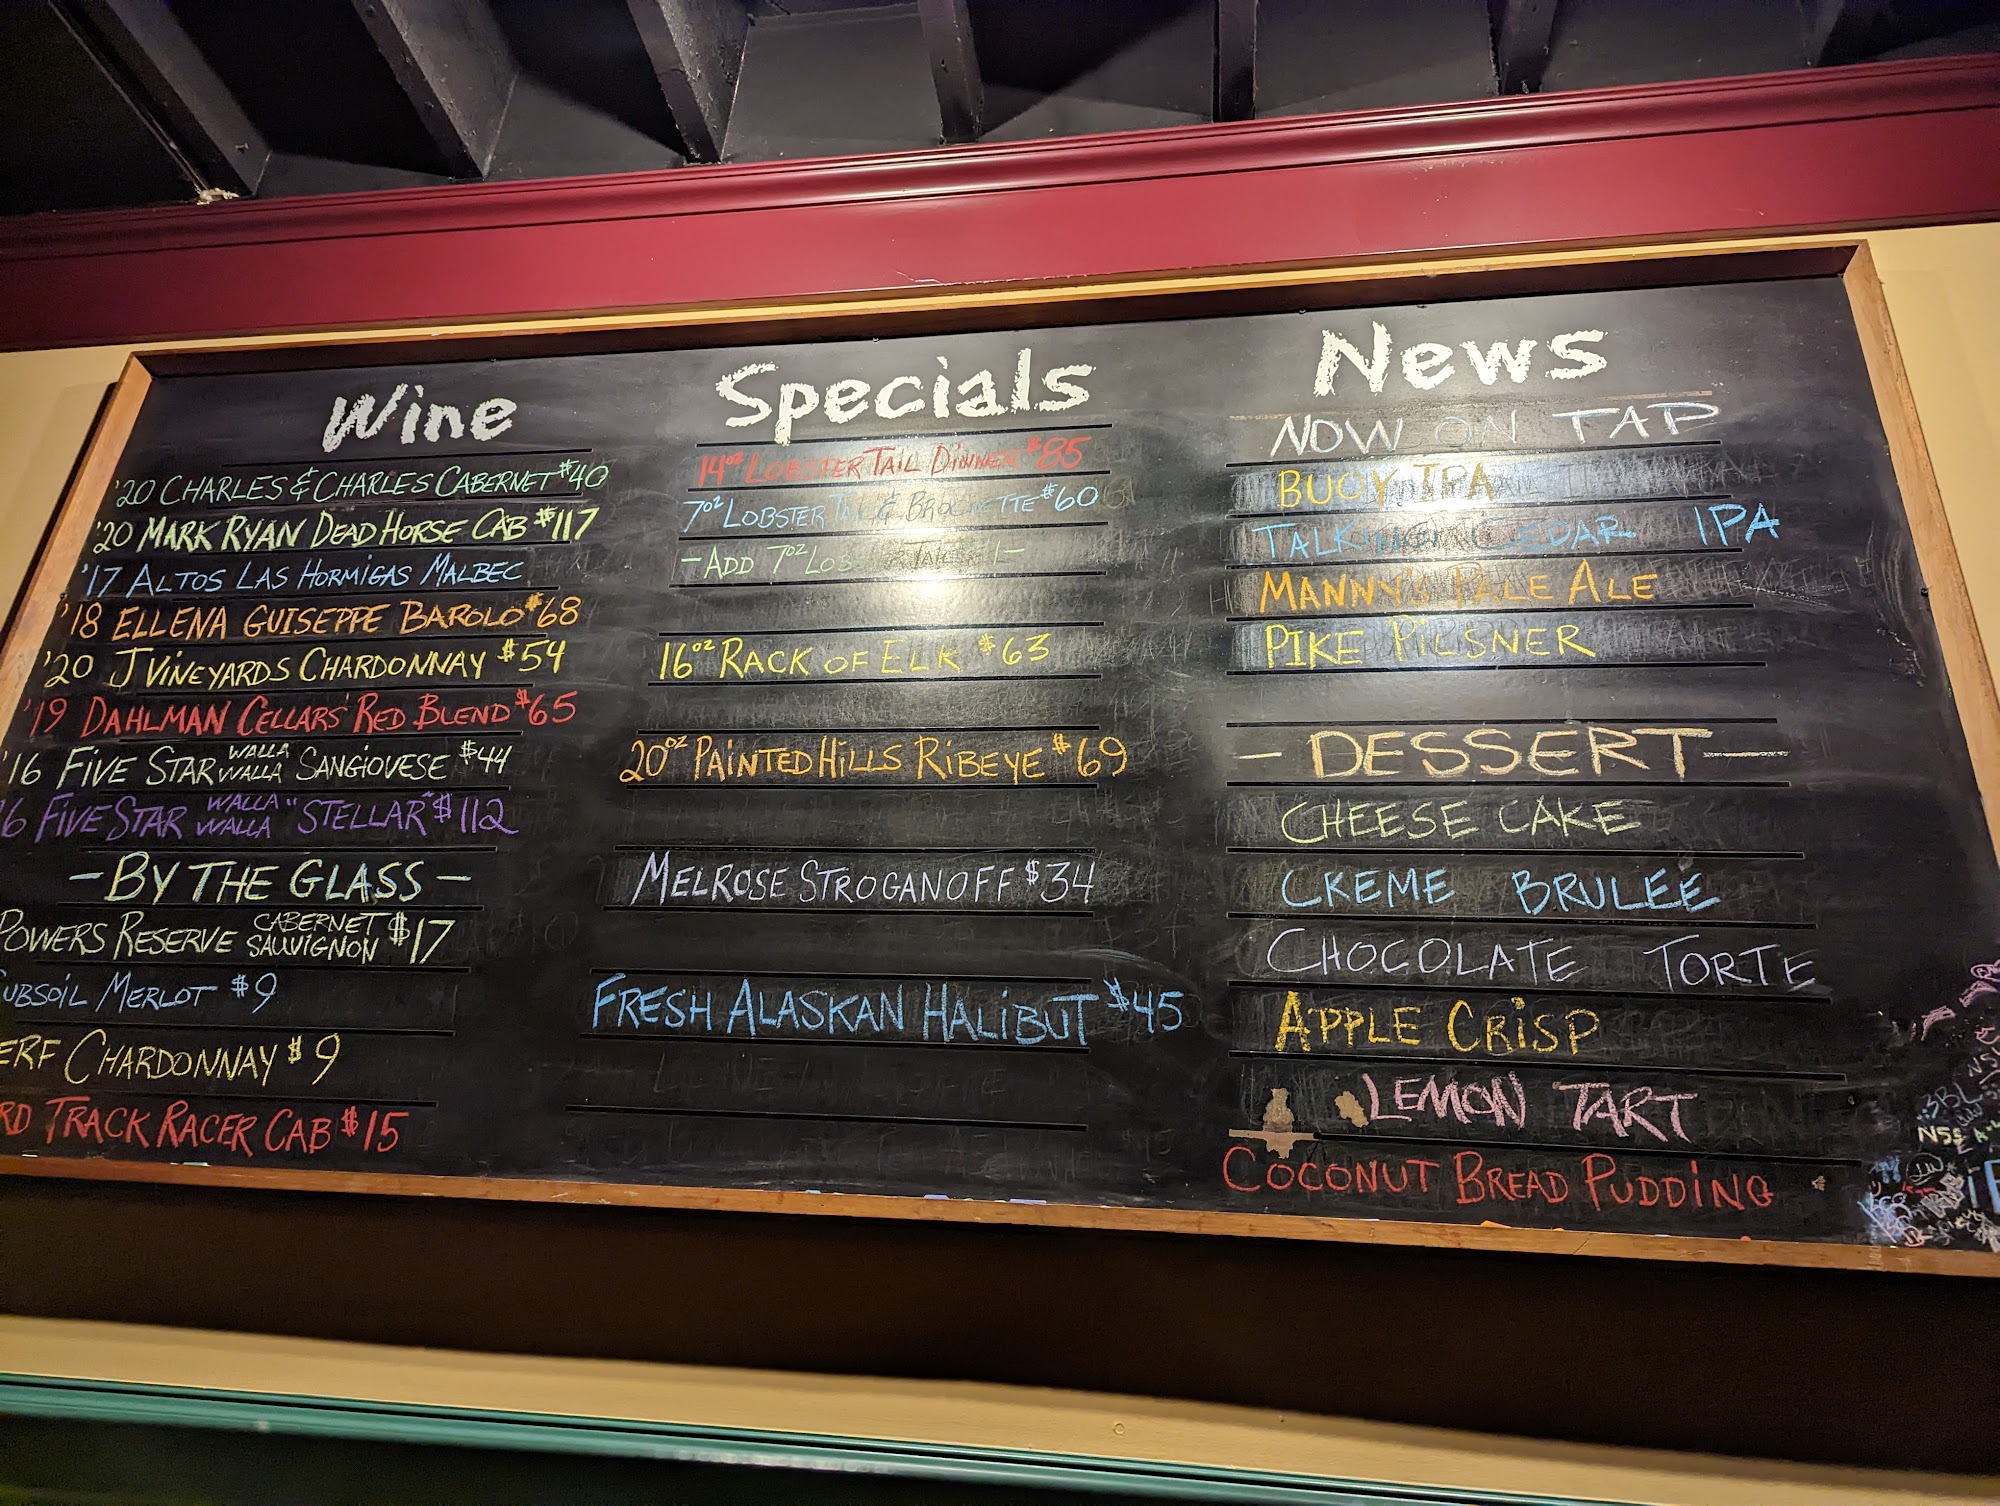 Wine
'20 CHARLES & CHARLES CABERNET $40
'20 MARK RYAN DEAD HORSE CAB $117
'17 ALTOS LAS HORMIGAS MALBEC
'18 ELLENA GUISEPPE BAROLO $68
'20 J VINEYARDS CHARDONNAY $54
'19 DAHLMAN CELLARS RED BLEND $65
'16 FIVE STAR WALLA WALLA SANGIOVESE $44
6 FIVE STAR WALLA WALLA "STELLAR" $112
- BY THE GLASS -
POWERS RESERVE CABERNET SAUVIGNON $17
UBSOIL MERLOT $9
ERF CHARDONNAY $9
RD TRACK RACER CAB $15
Specials
14oz LOBSTER TAIL DINNER $85
7oz LOBSTER TAIL & BROCHETTE $60
- ADD 7oz
16oz RACK OF ELK $63
20oz PAINTED HILLS RIBEYE $69
MELROSE STROGANOFF $34
FRESH ALASKAN HALIBUT $45
News
NOW ON TAP
BUOY IPA
TALKING CEDAR IPA
MANNY'S PALE ALE
PIKE PILSNER
- DESSERT -
CHEESE CAKE
CREME BRULEE
CHOCOLATE TORTE
APPLE CRISP
LEMON TART
COCONUT BREAD PUDDING